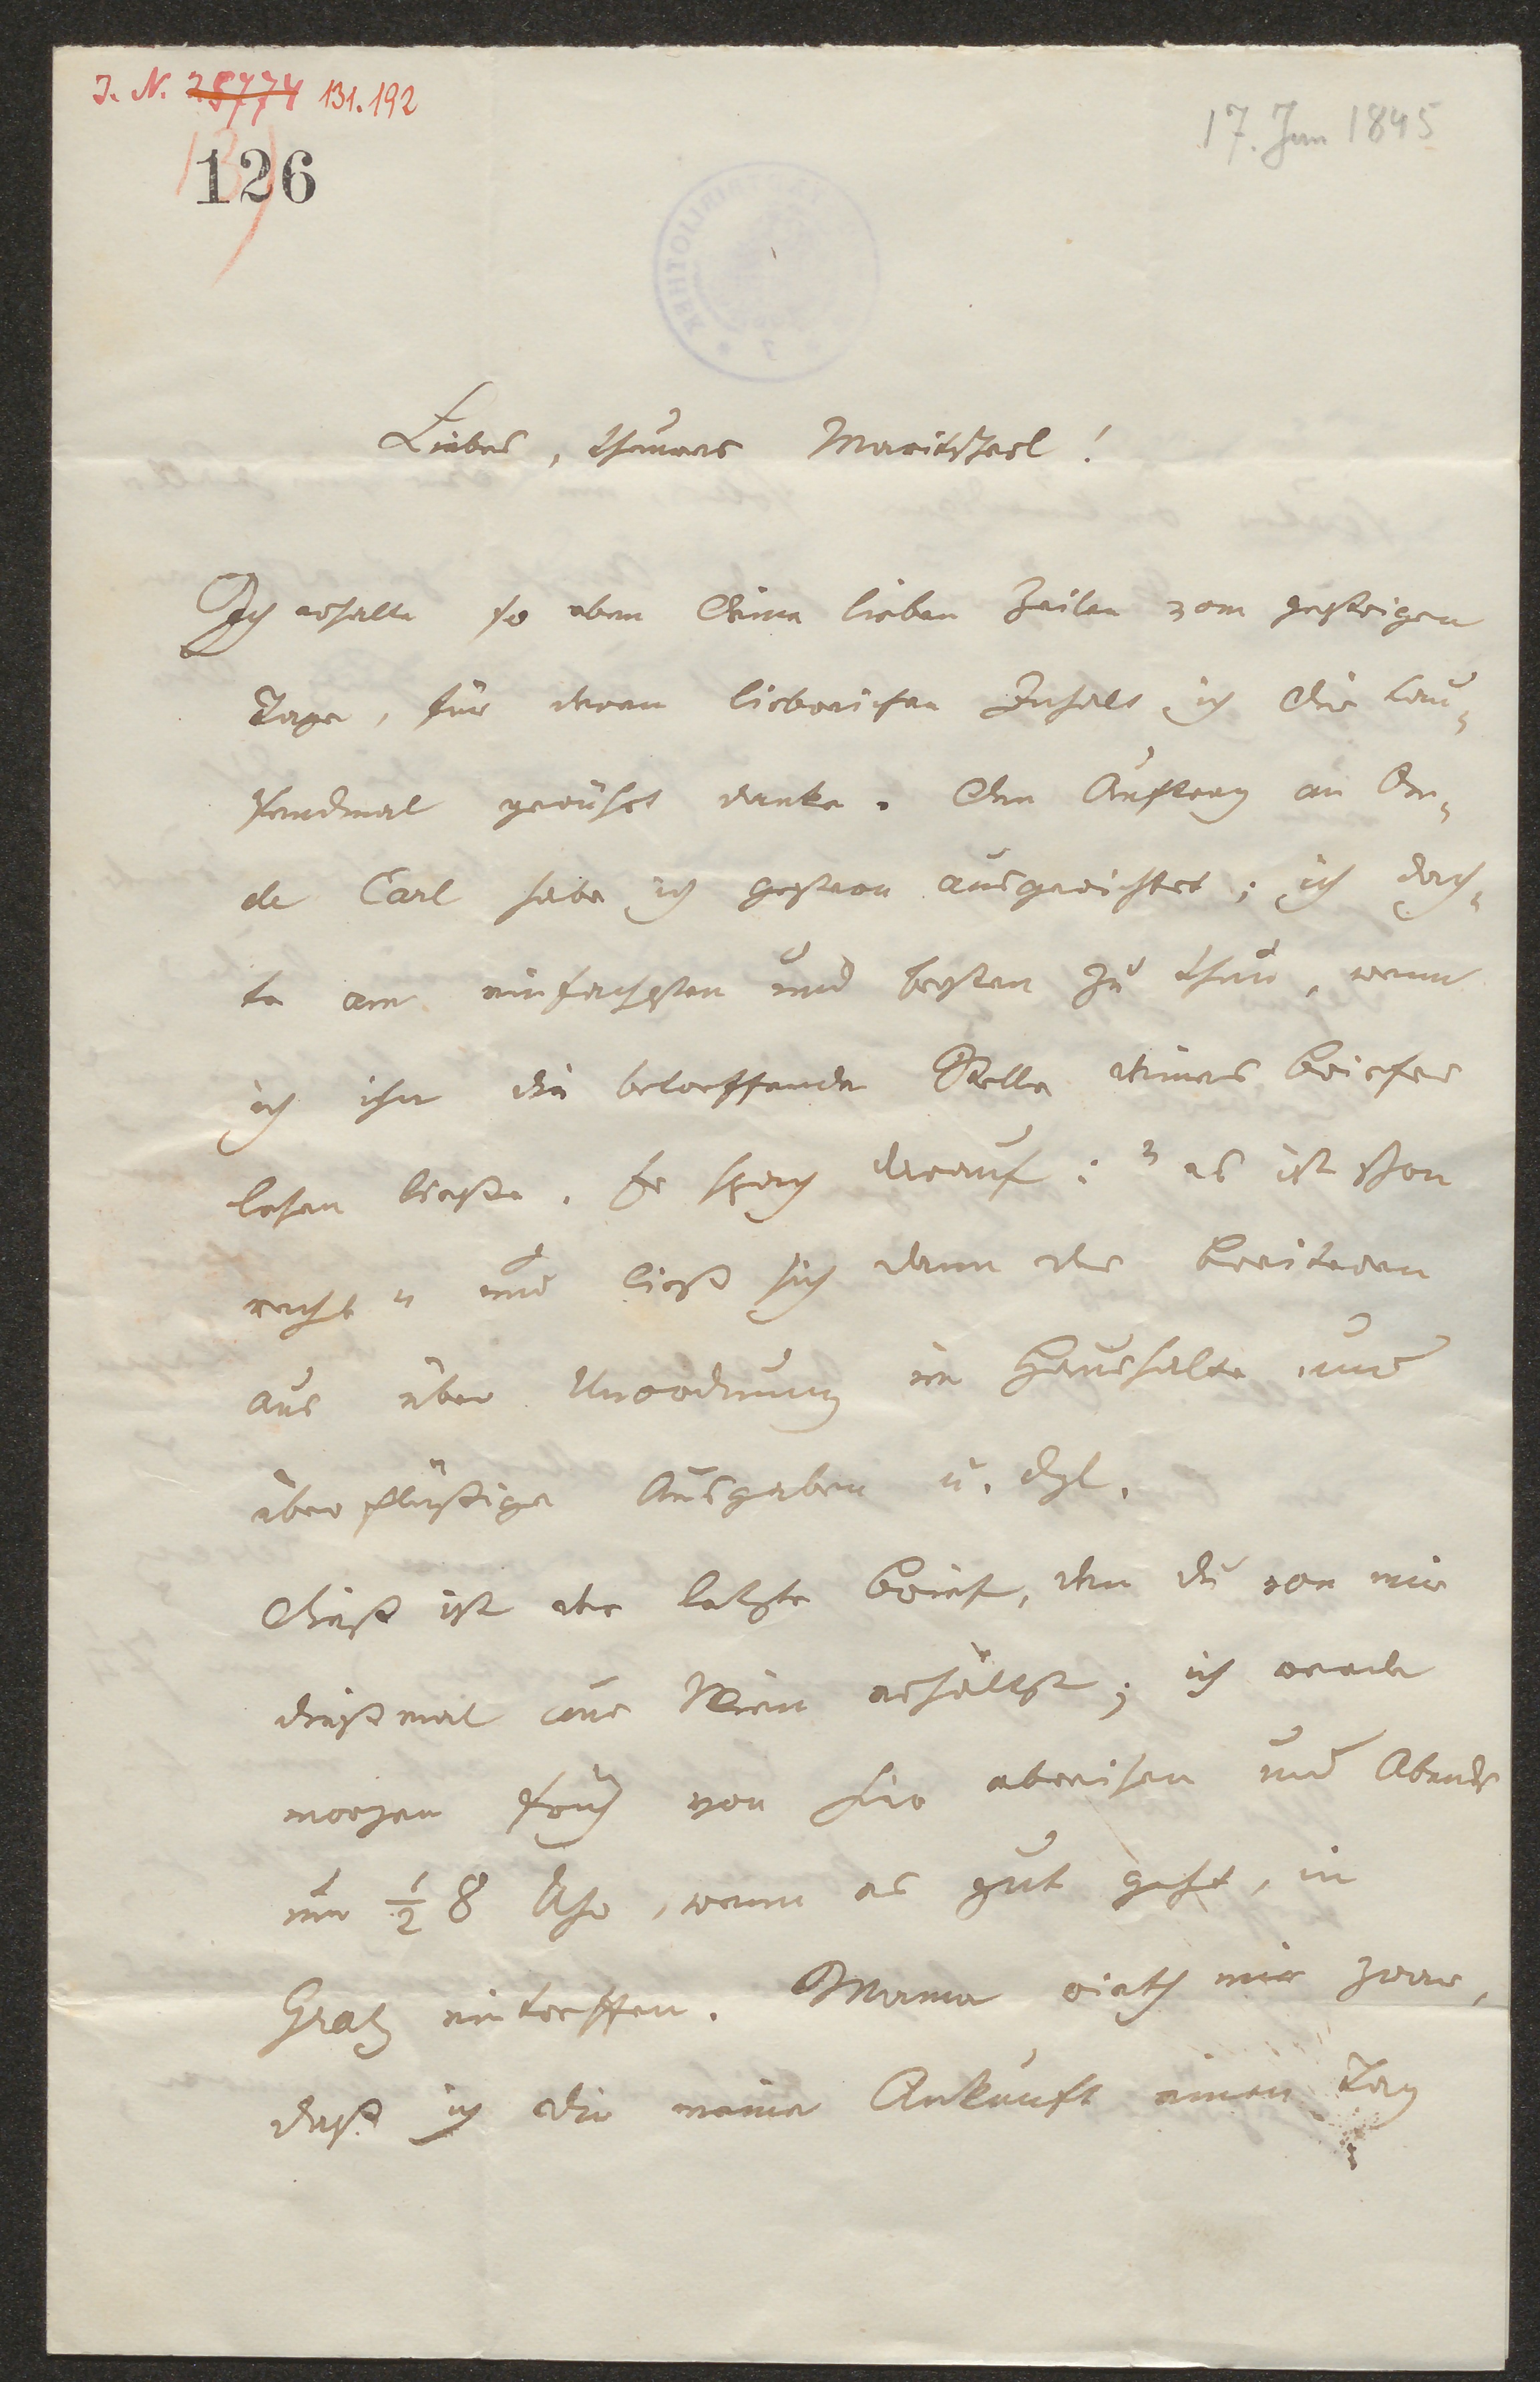 J. N. 28774 131.192
17. Jun 1845
126
Liebes, theures Maritscherl!
Ich erhalte so eben Deine lieben Zeilen vom gestrigen
Tage, für deren liebreichen Inhalt ich Dir tau¬
sendmal gerührt danke. Den Auftrag an On¬
cle Carl habe ich gestern ausgerichtet; ich dach¬
te am einfachsten und besten zu thun, wenn
ich ihn die betreffende Stelle deines Briefes
lesen ließe. Er sprach darauf: "es ist schon
recht" und ließ sich dann des Breiteren
aus über Unordnung im Haushalte und
überflüßige Ausgaben u. dgl.
Dieß ist der letzte Brief, den du von mir
dießmal aus Wien erhältst; ich werde
morgen früh von hier abreisen und Abends
um ½ 8 Uhr, wenn es gut geht, in
Gratz eintreffen. Mama rieth mir zwar,
daß ich dir meine Ankunft einen Tag